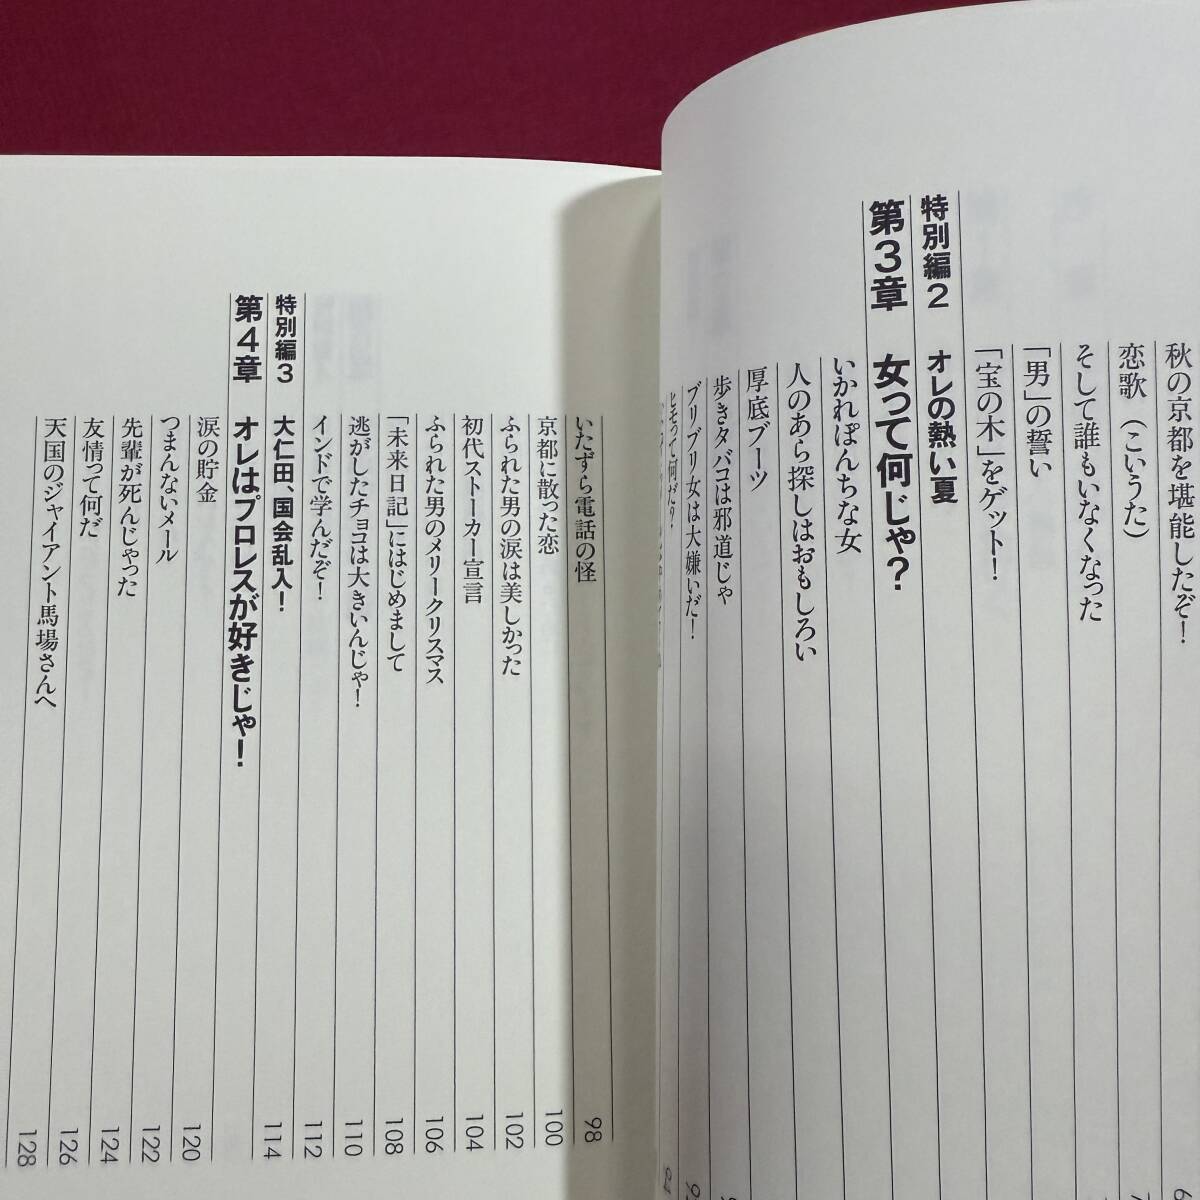 秋の京都を堪能したぞ!
恋歌(こいうた)
そして誰もいなくなった
「男」の誓い
「宝の木」をゲット!
特別編2 オレの熱い夏
第3章 女って何じゃ?
いかれぽんちな女
人のあら探しはおもしろい
厚底ブーツ
歩きタバコは邪道じゃ
ブリブリ女は大嫌いだ!
ヒモって何だ?
いたずら電話の怪 98
京都に散った恋 100
ふられた男の涙は美しかった 102
初代ストーカー宣言 104
ふられた男のメリークリスマス 106
「未来日記」にはじめまして 108
逃がしたチョコは大きいんじゃ! 110
インドで学んだぞ! 112
特別編3 大仁田、国会乱入! 114
第4章 オレはプロレスが好きじゃ!
涙の貯金 120
つまんないメール 122
先輩が死んじゃった 124
友情って何だ 126
天国のジャイアント馬場さんへ 128